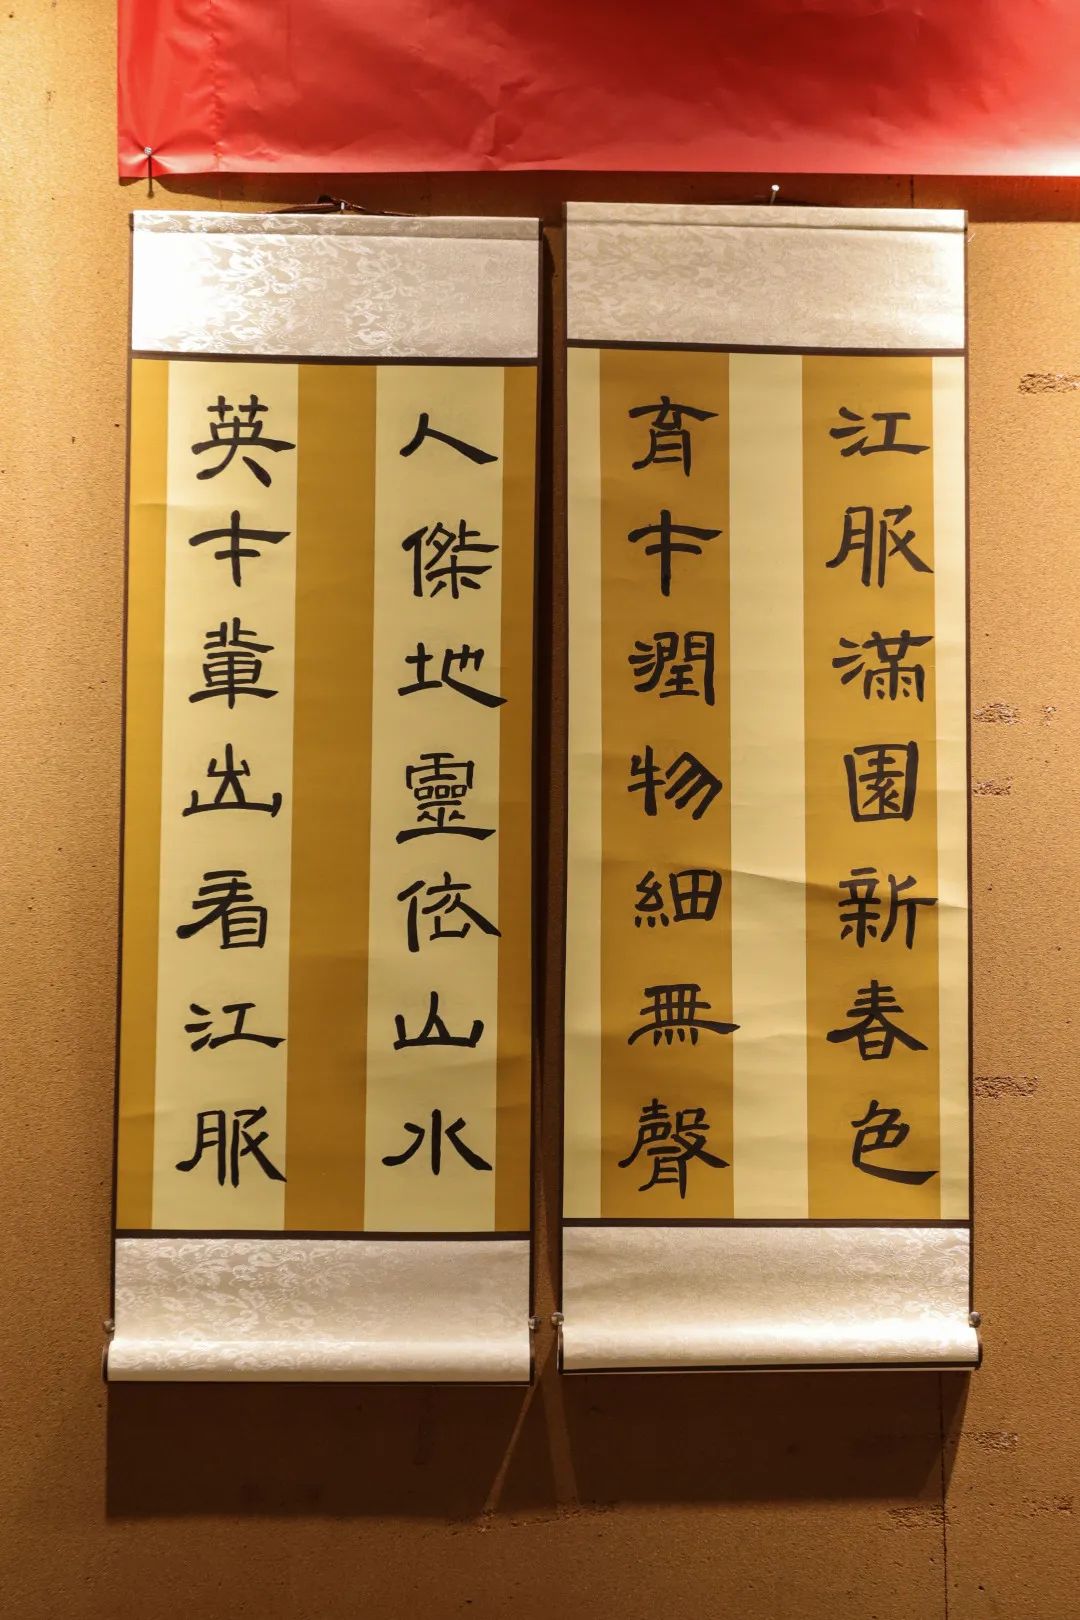 江服滿園新春色
育才潤物細無聲
人傑地靈依山水
英才輩出看江服